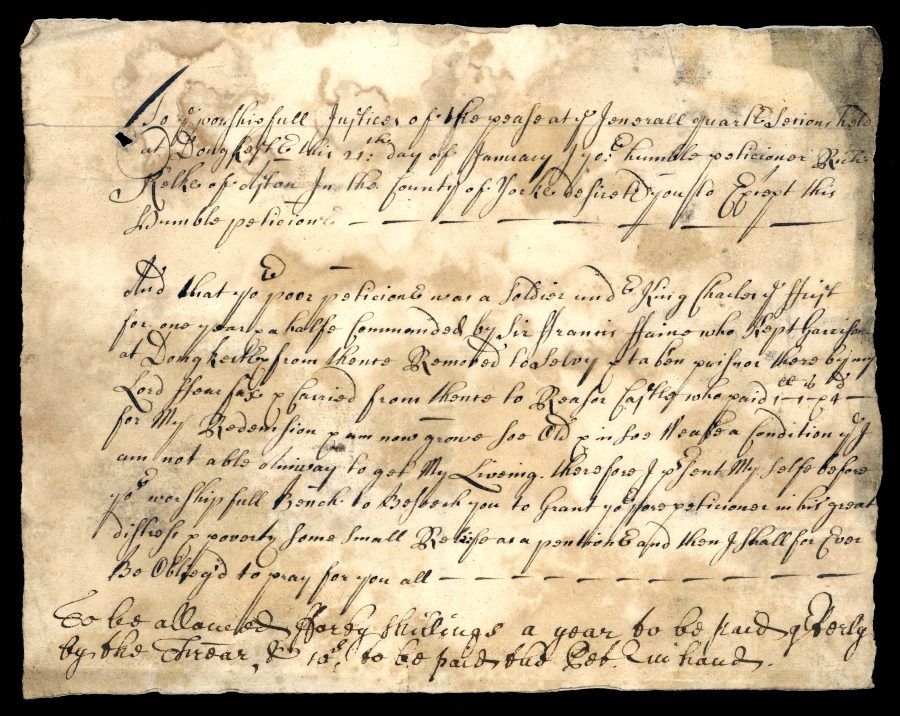 To ye worshipfull Justices of the pease at ye Jenerall quartr Sesions held
at Dongkestr this 11th day of January yor humble peticioner Rich:
Relke of In the County of Yorke desireth you to Exept this
Humble peticion
And that yor poor peticioner was a Soldier undr King Charles ye ffirst
for one year & a halfe Commanded by Sir ffrancis ffaine who Kept Garrison
at Dongkester from thence Removed to Selvy & taken prisnor there by my
Lord ffearfax & Carried from thence to Castle who paid 1-1-4
for My Redemsion & am now growe soe Old & in soe Weake a Condition yt I
am not able to get My Liveing. therefore I psent My Selfe before
yor worshipfull Bench to Beseech you to Grant yor pore peticioner in his great
distress & poverty some small Releife as a pention and then I shall for Ever
Be Oblieg'd to pray for you all
To be allowed fforty shillings a year to be paid qterly
by the Trear, & 10s. to be paid the Pet. in hand.